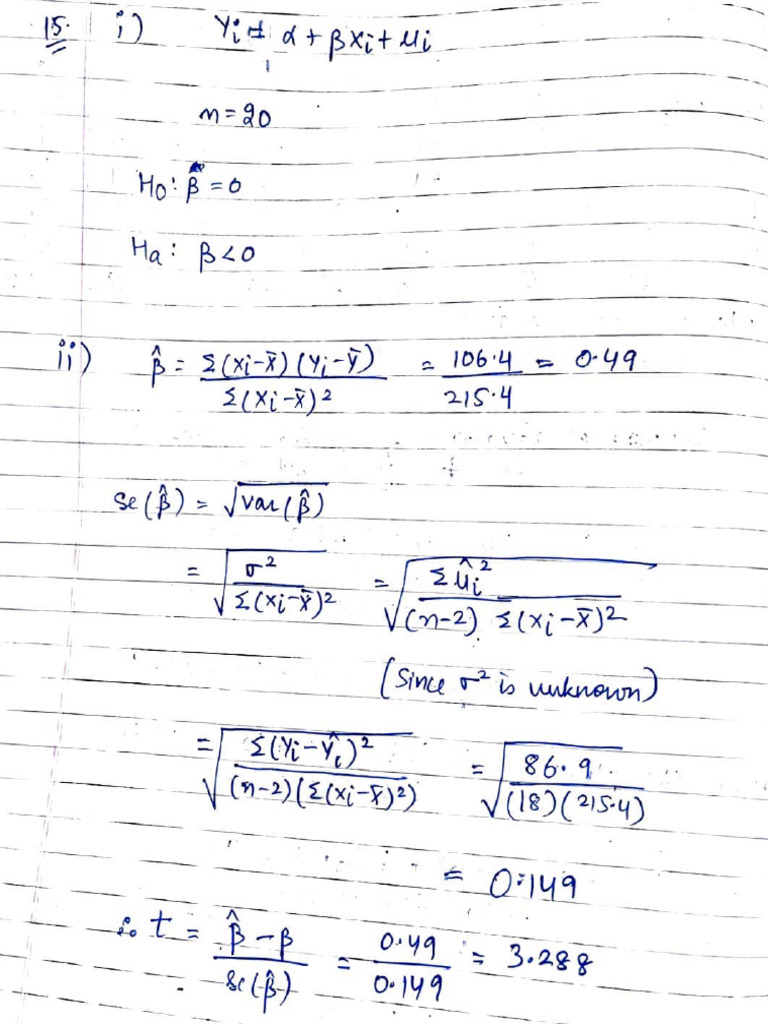 15. i) Yi = α + βxi + ui
n = 20
H0: β = 0
Ha: β < 0
ii) β̂ = Σ(xi-x̄)(Yi-Ȳ) / Σ(xi-x̄)² = 106.4 / 215.4 = 0.49
Se(β̂) = √var(β̂)
= √(σ² / Σ(xi-x̄)²) = √(Σûi² / (n-2) Σ(xi-x̄)²)
(Since σ² is unknown)
= √(Σ(Yi-Ŷi)² / (n-2)(Σ(xi-x̄)²)) = √(86.9 / (18)(215.4))
= 0.149
∴ t = β̂ - β / Se(β̂) = 0.49 / 0.149 = 3.288